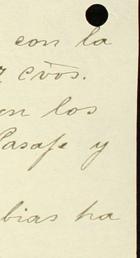 con la
cvos.
en los
Pasaje y
bias ha